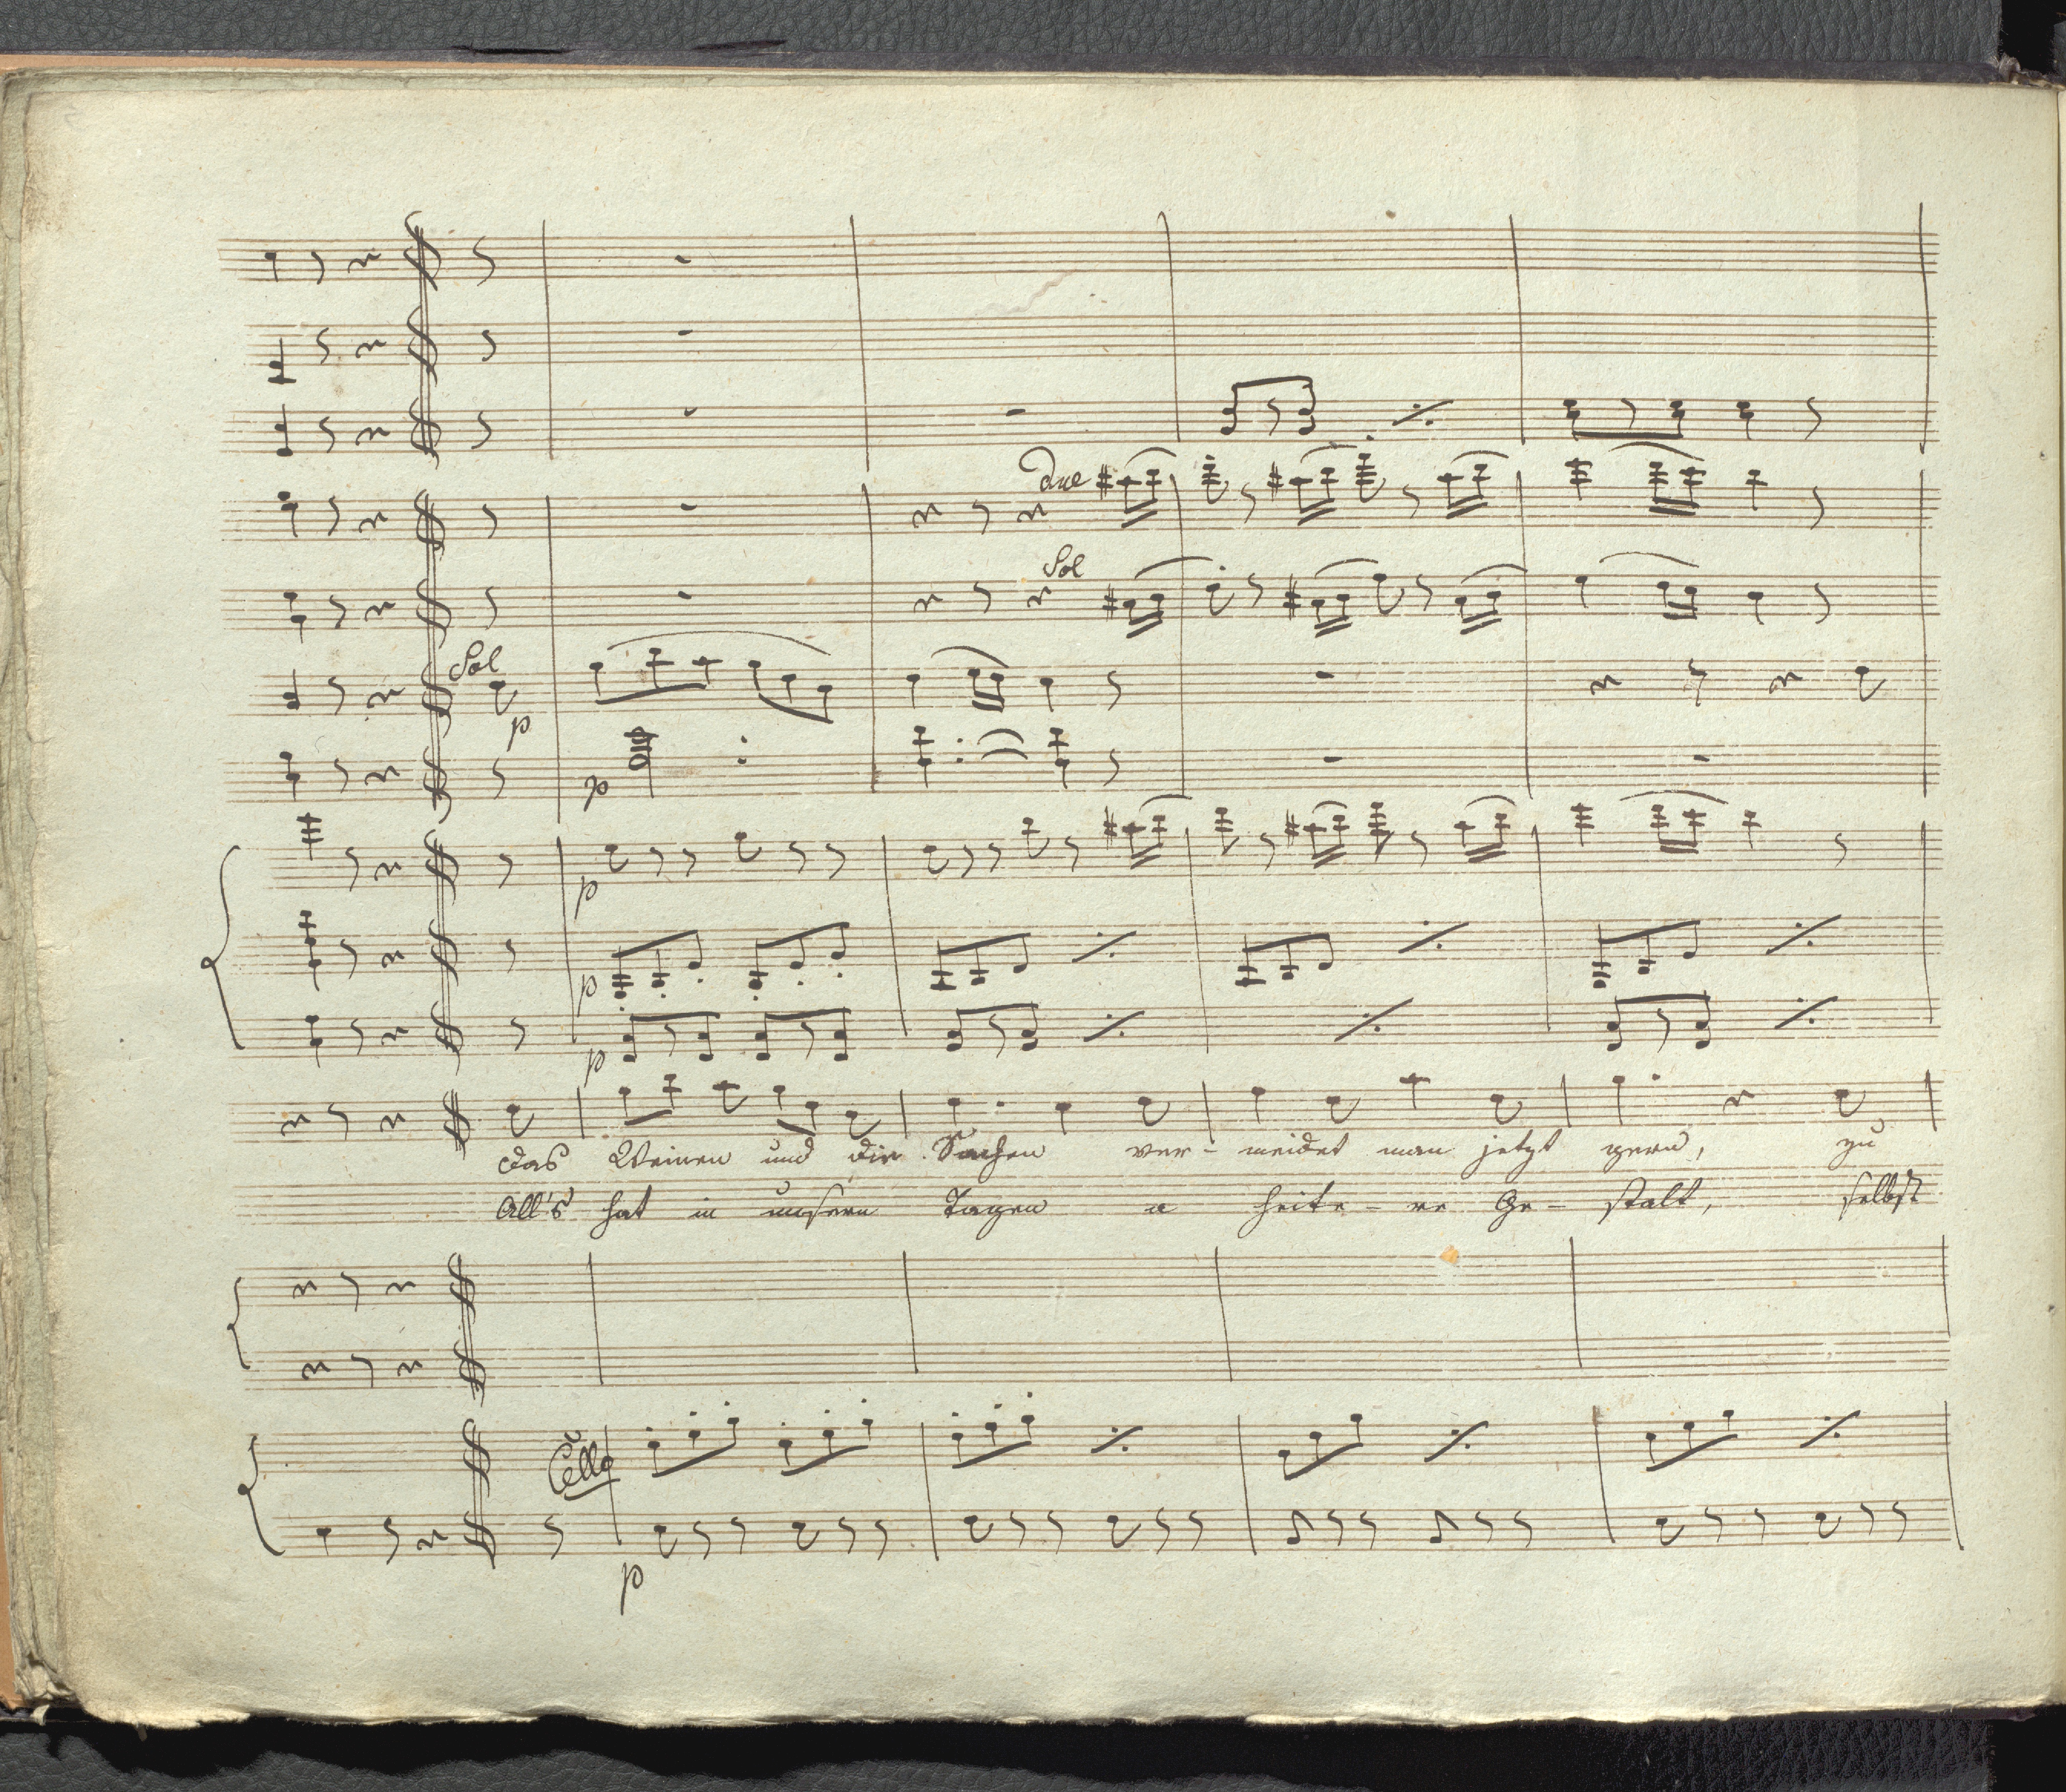 due
Sol
Sol
p
p
p
p
p
das Weinen und die Sachen ver- meidet man jetzt gern, zu
All's hat in unsern Tagen a heite- re Ge- stalt, selbst
Cello
p